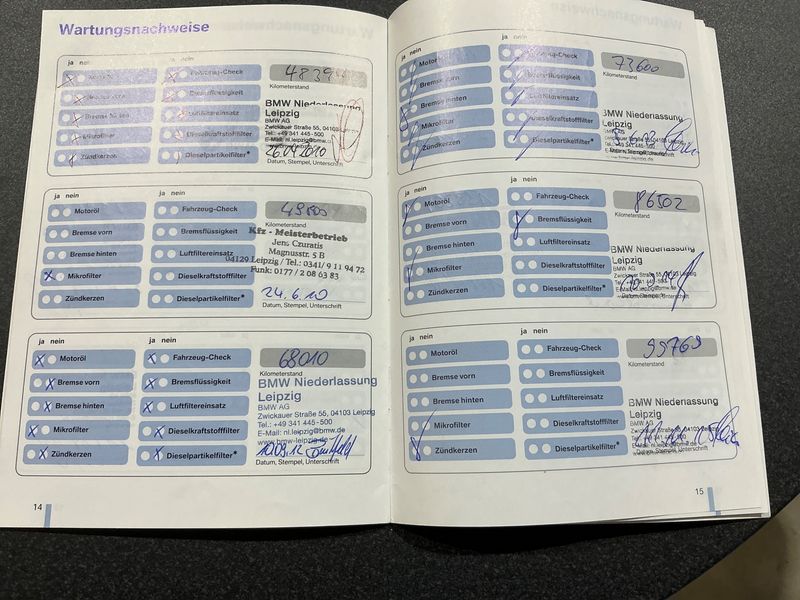 Wartungsnachweise
ja nein
ja nein
Motoröl
Bremse vorn
Bremse hinten
Mikrofilter
Zündkerzen
Fahrzeug-Check
Bremsflüssigkeit
Luftfiltereinsatz
Dieselkraftstofffilter
Dieselpartikelfilter*
Kilometerstand
BMW Niederlassung
Leipzig
BMW AG
Zwickauer Straße 55, 04103
Tel.: +49 341 445-500
E-Mail: nl.leipzig@bmw.de
Datum, Stempel, Unterschrift
ja nein
ja nein
Motoröl
Bremse vorn
Bremse hinten
Mikrofilter
Zündkerzen
Fahrzeug-Check
Bremsflüssigkeit
Luftfiltereinsatz
Dieselkraftstofffilter
Dieselpartikelfilter*
Kilometerstand
Kfz - Meisterbetrieb
Jens Czuratis
Magnusstr. 5 B
04129 Leipzig / Tel.: 0341/ 9 11 94 72
Funk: 0177 / 2 08 63 83
24.6.10
Datum, Stempel, Unterschrift
ja nein
ja nein
Motoröl
Bremse vorn
Bremse hinten
Mikrofilter
Zündkerzen
Fahrzeug-Check
Bremsflüssigkeit
Luftfiltereinsatz
Dieselkraftstofffilter
Dieselpartikelfilter*
68010
Kilometerstand
BMW Niederlassung
Leipzig
BMW AG
Zwickauer Straße 55, 04103 Leipzig
Tel.: +49 341 445-500
E-Mail: nl.leipzig@bmw.de
www.bmw-leipzig.de
Datum, Stempel, Unterschrift
14
ja nein
ja nein
Motoröl
Bremse vorn
Bremse hinten
Mikrofilter
Zündkerzen
Fahrzeug-Check
Bremsflüssigkeit
Luftfiltereinsatz
Dieselkraftstofffilter
Dieselpartikelfilter*
73600
Kilometerstand
BMW Niederlassung
Leipzig
BMW AG
ja nein
ja nein
Motoröl
Bremse vorn
Bremse hinten
Mikrofilter
Zündkerzen
Fahrzeug-Check
Bremsflüssigkeit
Luftfiltereinsatz
Dieselkraftstofffilter
Dieselpartikelfilter*
86502
Kilometerstand
BMW Niederlassung
Leipzig
BMW AG
Datum, Stempel, Unterschrift
ja nein
ja nein
Motoröl
Bremse vorn
Bremse hinten
Mikrofilter
Zündkerzen
Fahrzeug-Check
Bremsflüssigkeit
Luftfiltereinsatz
Dieselkraftstofffilter
Dieselpartikelfilter*
99769
Kilometerstand
BMW Niederlassung
Leipzig
BMW AG
15